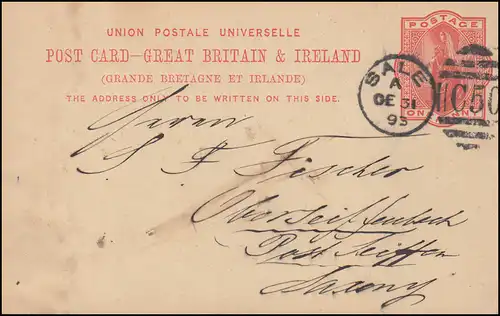 UNION POSTALE UNIVERSELLE
POST CARD—GREAT BRITAIN & IRELAND
(GRANDE BRETAGNE ET IRLANDE)
THE ADDRESS ONLY TO BE WRITTEN ON THIS SIDE.
POSTAGE
ONE
SALE
A
DE 31
93
C50
Herrn
S F Fischer
Oberseiffenbach
Post Seiffen
Saxony